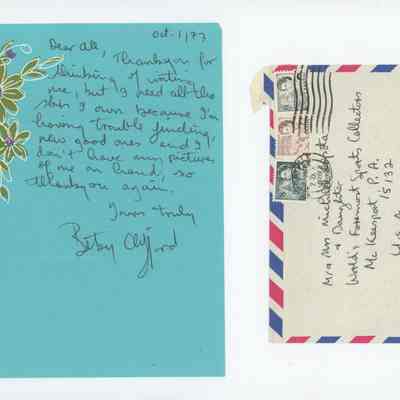 Oct. 1/73
Dear All, Thankyou for
thinking of writing
me, but I need all the
skis I own because I'm
having trouble finding
new good ones and I
don't have any pictures
of me on hand so
thankyou again.
Yours truly
Betsy Clifford
Mr & Mrs Michael
& Daughter
World's Foremost Sports Collectors
Mc Keesport P.A.
15132
U.S.A